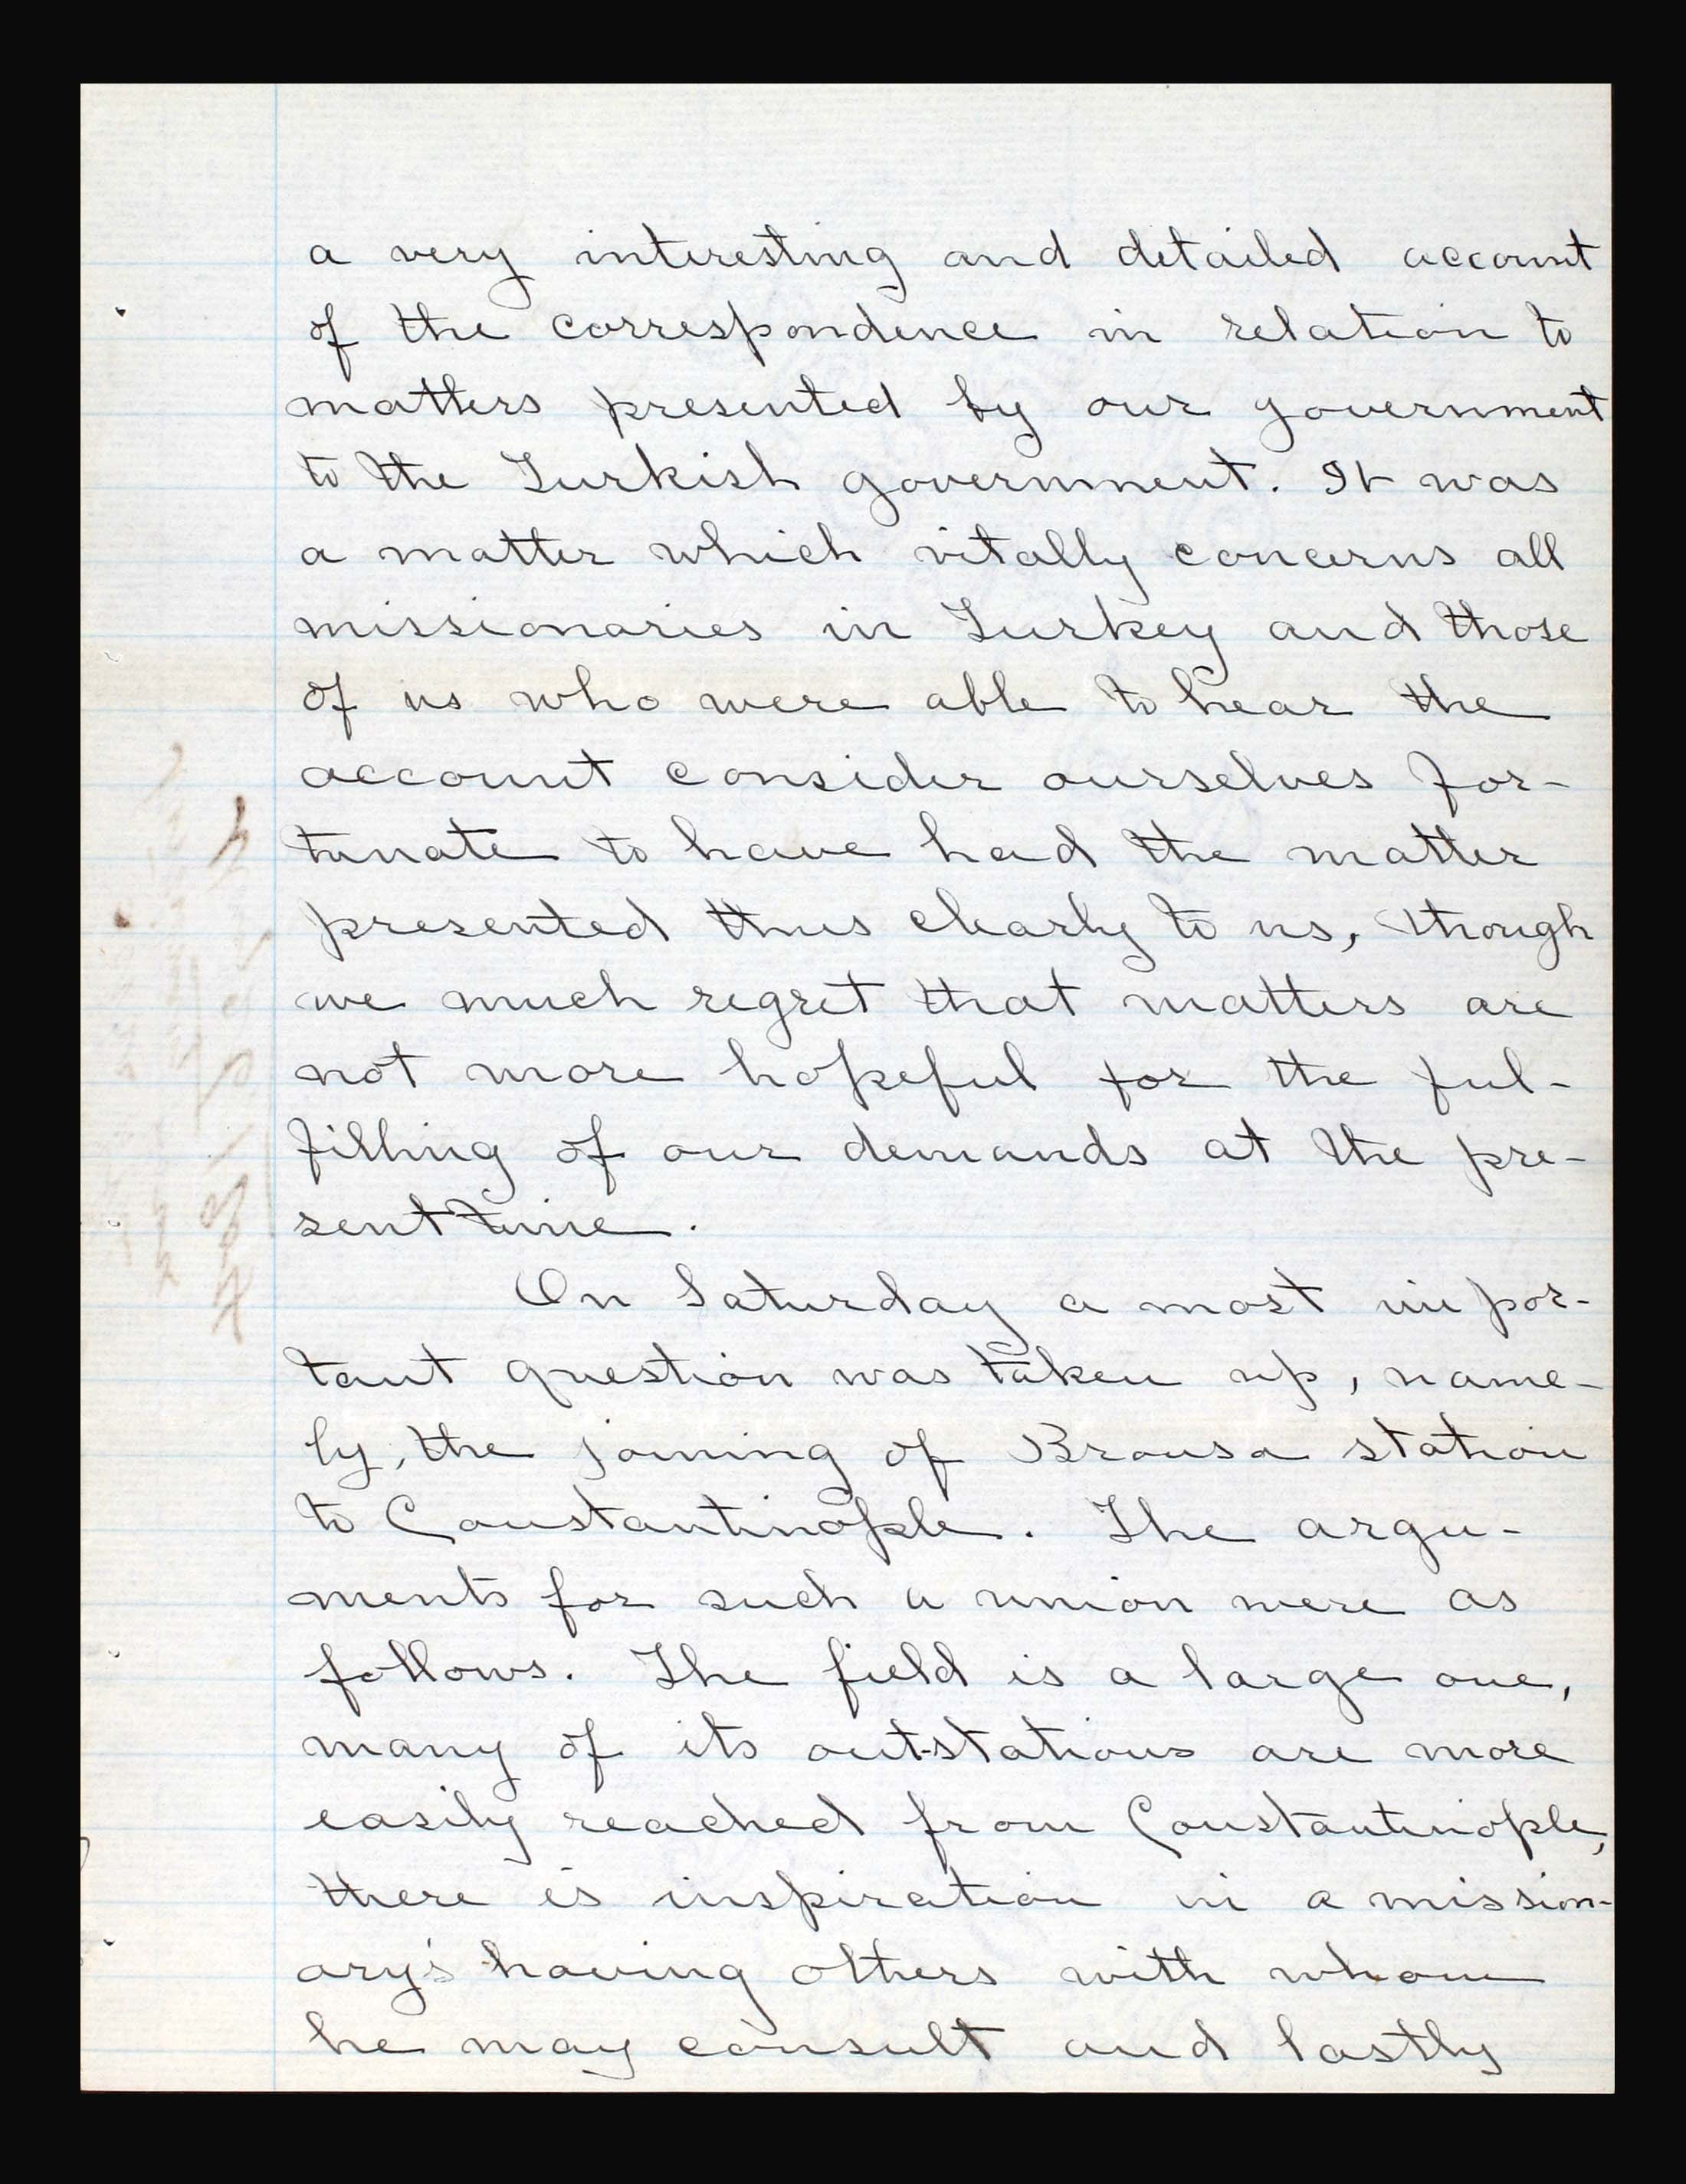 a very interesting and detailed account
of the correspondence in relation to
matters presented by our government
to the Turkish government. It was
a matter which vitally concerns all
missionaries in Turkey and those
of us who were able to hear the
account consider ourselves for-
tunate to have had the matter
presented thus clearly to us, though
we much regret that matters are
not more hopeful for the ful-
filling of our demands at the pre-
sent time.
On Saturday a most impor-
tant question was taken up, name-
ly, the joining of Brousa station
to Constantinople. The argu-
ments for such a union were as
follows. The field is a large one,
many of its out-stations are more
easily reached from Constantinople,
there is inspiration in a mission-
ary's having others with whom
he may consult and lastly